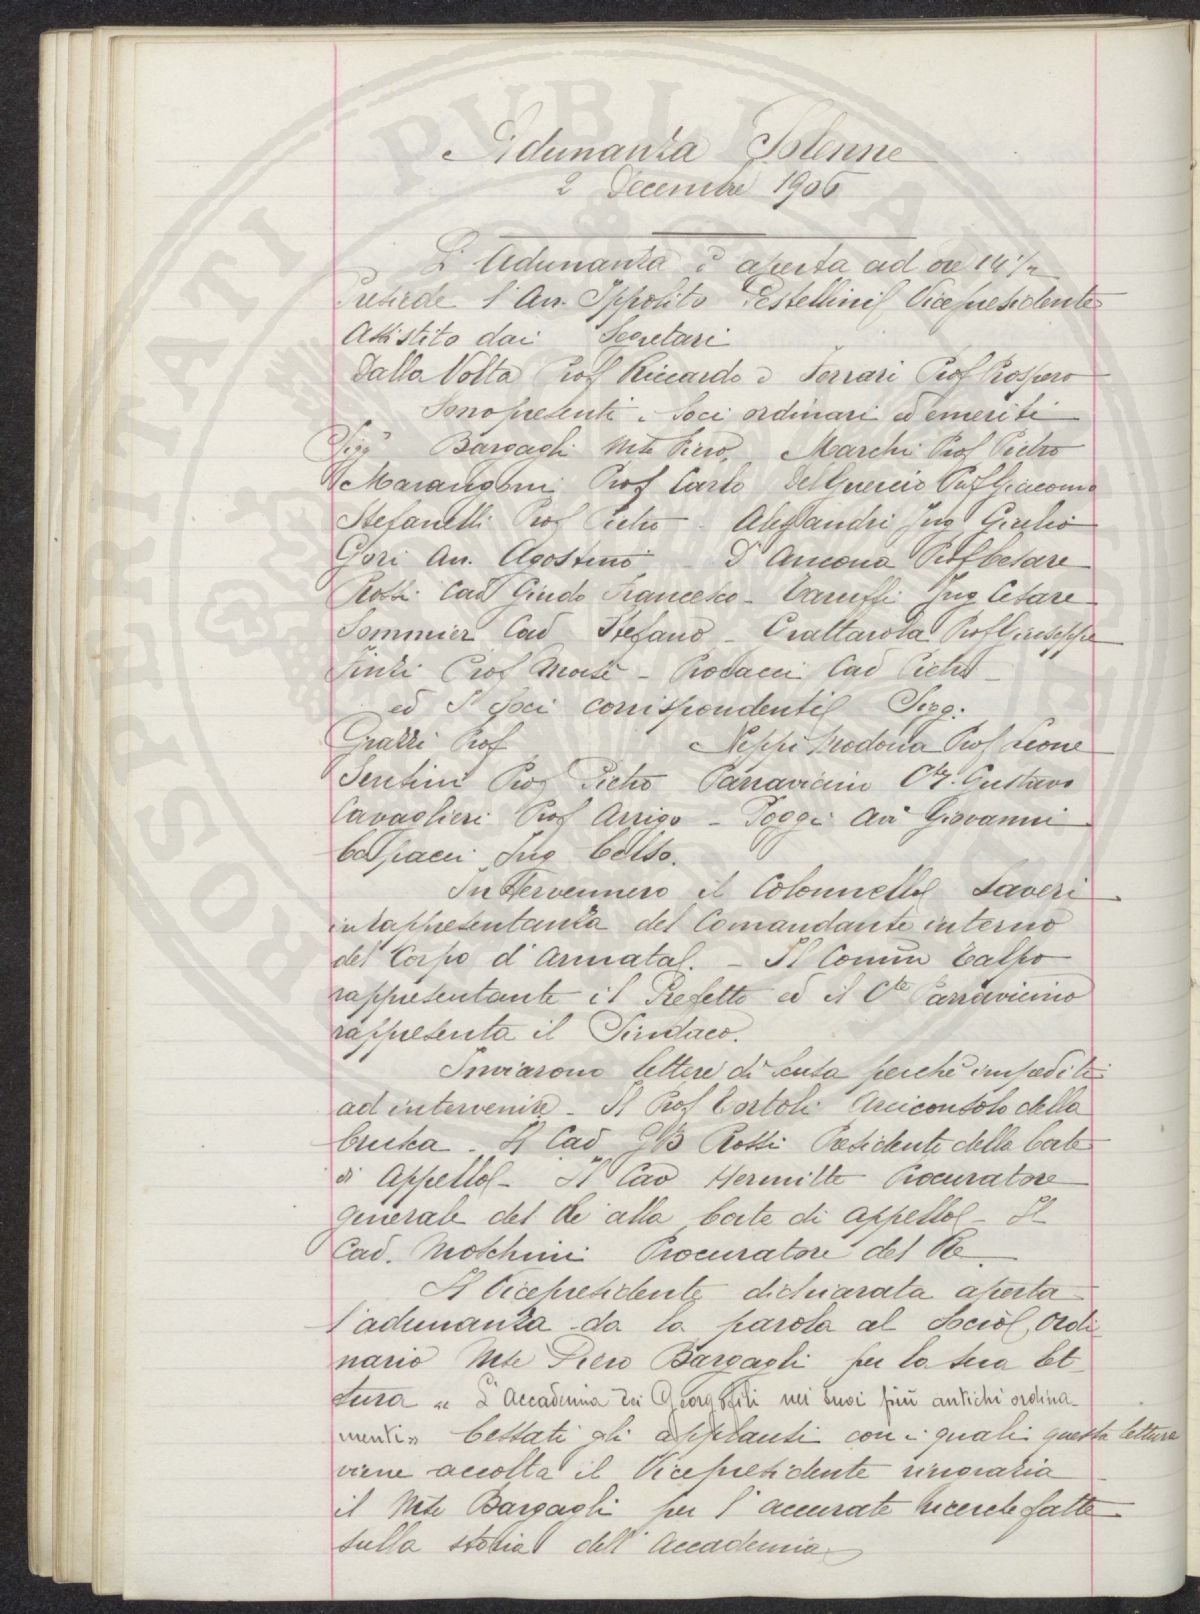 Adunanza Solenne
2 Decembre 1906
L'Adunanza è aperta ad ore 14 1/2
Presiede l'Avv. Ippolito Pestellini Vicepresidente
Assistito dai Segretari
Dalla Volta Prof Riccardo e Ferrari Prof Prospero
Sono presenti i Soci ordinari ed emeriti
Sigg Bargagli Mse Piero, Marchi Prof Pietro
Marangoni Prof Carlo Del Guercio Prof Giacomo
Stefanelli Prof Pietro - Alessandri Ing Giulio
Gori Avv. Agostino - D'Ancona Prof Cesare
Rossi Cav Guido Francesco - Taruffi Ing Cesare
Sommier Cav Stefano - Grattarola Prof Giuseppe
Tinti Prof Mosè - Prodacci Cav Pietro -
ed I Soci corrispondenti Sigg.
Grazzi Prof Neppi Modona Prof Leone
Sensini Prof Pietro Parravicino Cte. Gustavo
Cavaglieri Prof Arrigo - Poggi Avv Giovanni
Capacci Ing Celso.
Intervennero il Colonnello Saveri
in rappresentanza del Comandante interno
del Corpo d'Armata. - Il Comm Talpo
rappresentante il Prefetto ed il Cte Parravicino
rappresenta il Sindaco.
Inviarono lettere di scusa perchè impediti
ad intervenire - Il Prof Tortoli Arciconsolo della
Crusca - Il Cav GB Rossi Presidente della Corte
di Appello - Il Cav Hermitte Procuratore
generale del Re alla Corte di appello - Il
Cav. Moschini Procuratore del Re.
Il Vicepresidente dichiarata aperta
l'adunanza da la parola al Socio Ordi
nario Mse Piero Bargagli per la sua let-
tura « L'Accademia dei Georgofili nei suoi più antichi ordina-
menti » Cessati gli applausi con i quali questa lettura
viene accolta il Vicepresidente ringrazia
il Mse Bargagli per l'accurate ricerche fatte
sulla storia dell'Accademia
PROSPERITATI PUBLICAE